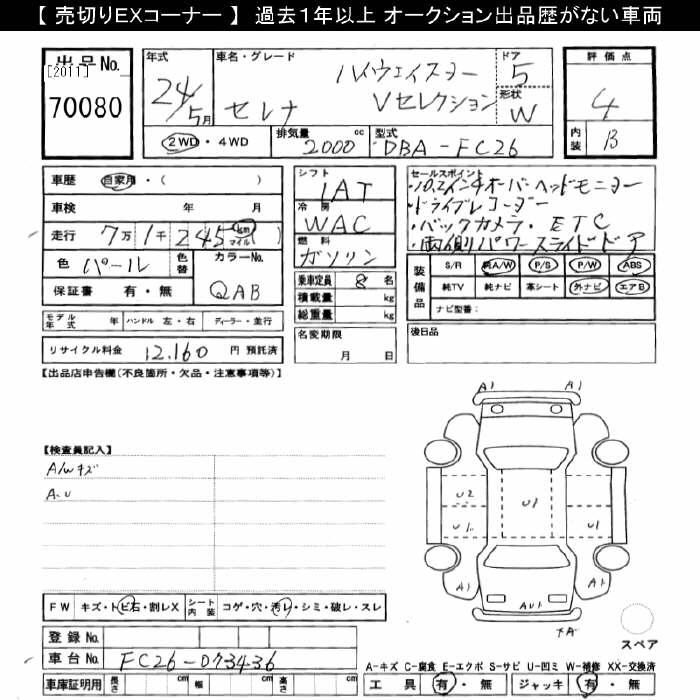 【 売切りEXコーナー 】 過去1年以上 オークション出品歴がない車両
出品No.
[2011]
70080
年式 24年 5月
車名・グレード セレナ ハイウェイスター Vセレクション
ドア 5
形状 W
2WD・4WD
排気量 2000 cc
型式 DBA-FC26
評価点 4
内装 B
車歴 自家用・( )
車検 年 月
走行 7万 1千 245 km マイル ( )
色 パール 色替 カラーNo. QAB
保証書 有・無
モデル年式 年 ハンドル 左・右 ディーラー・並行
リサイクル料金 12,160 円 預託済
シフト IAT
冷房 WAC
燃料 ガソリン
乗車定員 8 名
積載量 kg
総重量 kg
名変期限 月 日
セールスポイント
・10.2インチオーバーヘッドモニター
・ドライブレコーダー
・バックカメラ・ETC
・両側パワースライドドア
装備品 S/R 純A/W P/S P/W ABS
純TV 純ナビ 革シート 外ナビ エアB
ナビ型番:
後日品
【出品店申告欄(不良箇所・欠品・注意事項等)】
【検査員記入】
A/Wキズ
A-U
A1 A1
U2 U1
U1 U1
A1 A1
AU1
XA
スペア
FW キズ・トビ石・割レX シート内装 コゲ・穴・汚レ・シミ・破レ・スレ
登録No.
車台No. FC26-073436
車庫証明用 長さ cm 幅 cm 高さ cm
A-キズ C-腐食 E-エクボ S-サビ U-凹ミ W-補修 XX-交換済
工具 有・無 ジャッキ 有・無